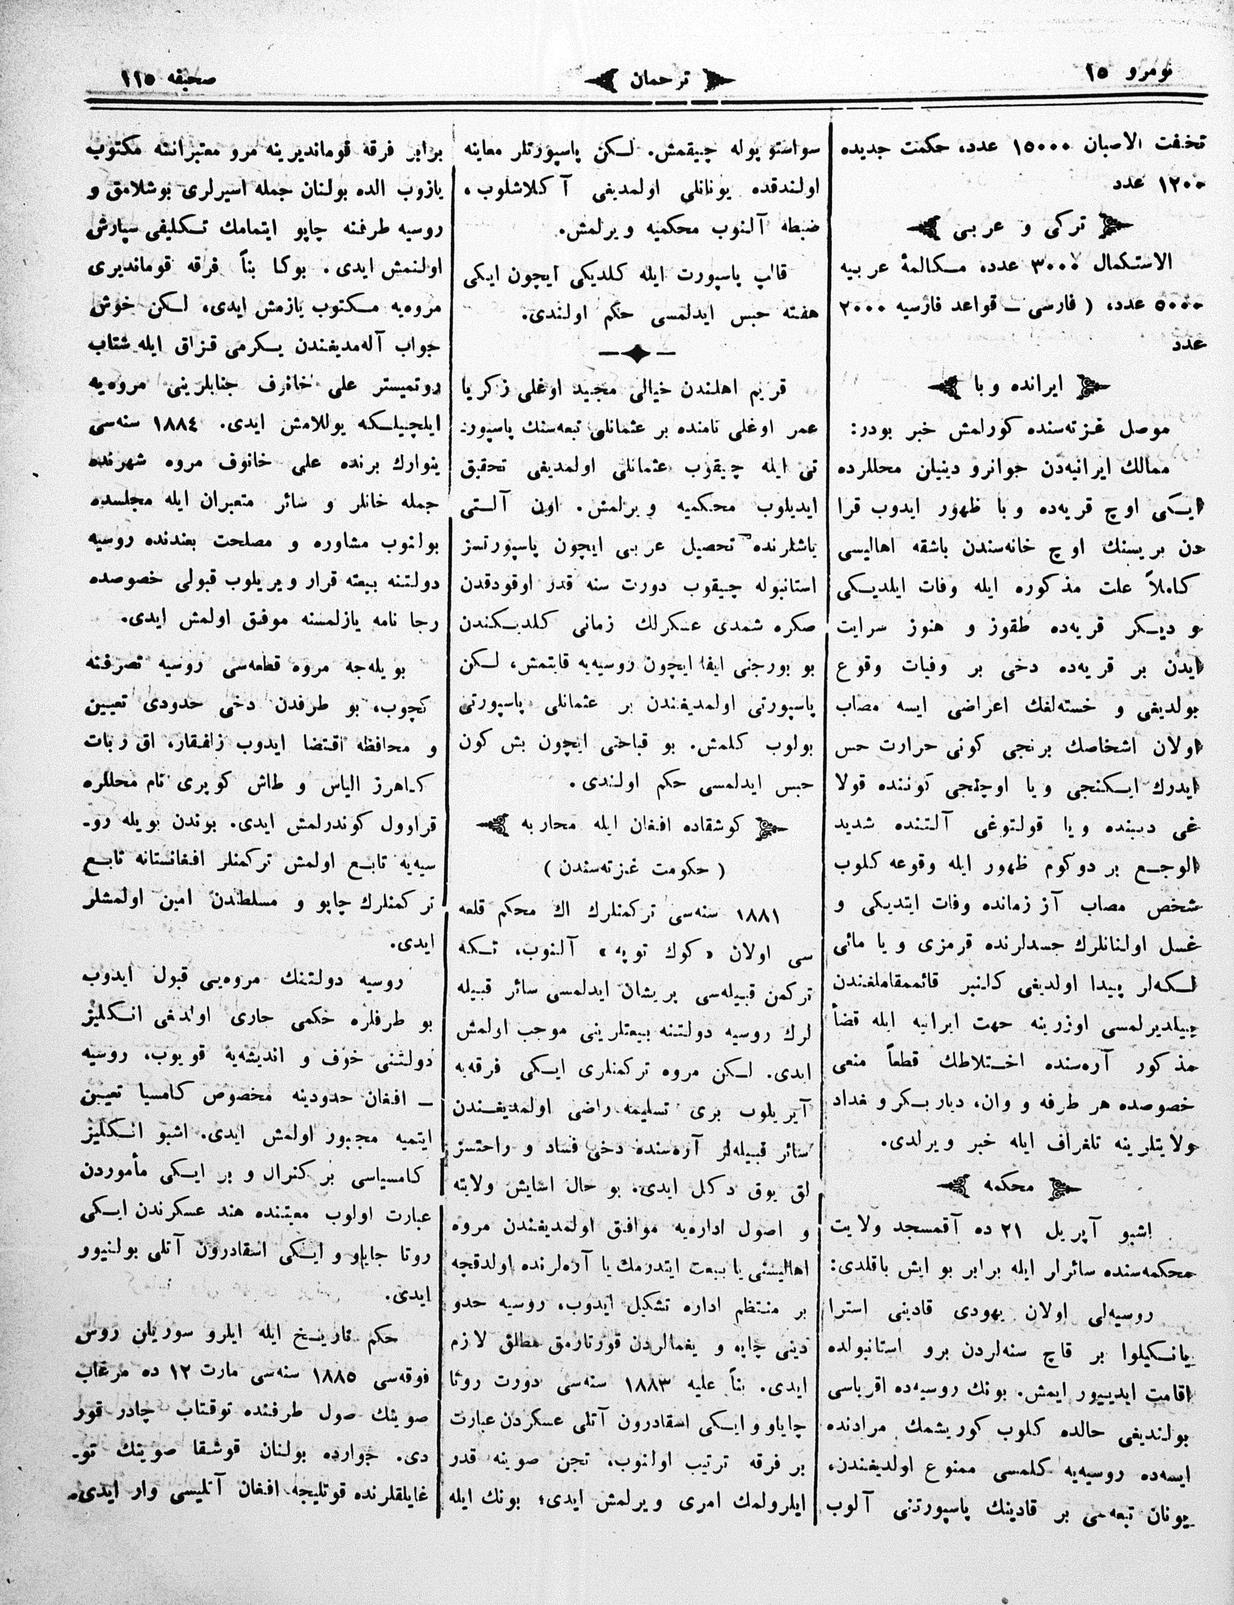 نومرو ١٥
ترجمان
صحیفه ١١٥
تخفت الاصبان ١٥٠٠٠ عدد، حكمت جدیده
١٢٠٠ عدد
ترکی و عربی
الاستكمال ٣٠٠٠ عدد، مكالمهٔ عربیه
٥٠٠٠ عدد، ( فارسی ــ قواعد فارسیه ٢٠٠٠
عدد
ایرانده وبا
موصل غزته‌سنده كورلمش خبر بودر:
ممالك ایرانیه‌دن جوانرو دینیلن محللرده
ایكی اوچ قریه‌ده وبا ظهور ایدوب قرا
دن بریسنك اوچ خانه‌سندن باشقه اهالیسی
كاملاً علت مذكوره ایله وفات ایلدیكی
و دیكر قریه‌ده طقوز و هنوز سرایت
ایدن بر قریه‌ده دخی بر وفیات وقوع
بولدیغی و خسته‌لغك اعراضی ایسه مصاب
اولان اشخاصك برنجی كونی حرارت حس
ایدرك ایكنجی ویا اوچنجی كوننده قولا
غی دیبنده ویا قولتوغی آلتنده شدید
الوجع بر دوكوم ظهور ایله وقوعه كلوب
شخص مصاب آز زمانده وفات ایتدیكی و
غسل اولنانلرك جسدلرنده قرمزی و یا مائی
لكه‌لر پیدا اولدیغی كلنبر قائممقاملغندن
بیلدیرلمسی اوزرینه جهت ایرانیه ایله قضأ
مذكور آره‌سنده اختلاطك قطعاً منعی
خصوصده هر طرفه و وان، دیاربكر و بغداد
ولایتلرینه تلغراف ایله خبر ویرلدی.
محكمه
اشبو آپریل ٢١ ده آقمسجد ولایت
محكمه‌سنده سائرلر ایله برابر بو ایش باقلدی:
روسیه‌لی اولان یهودی قادینی استرا
یانكیلوا بر قاچ سنه‌لردن برو استانبولده
اقامت ایدییور ایمش. بونك روسیه‌ده اقرباسی
بولندیغی حالده كلوب كوریشمك مرادنده
ایسه‌ده روسیه‌یه كلمسی ممنوع اولدیغندن،
یونان تبعه‌سی بر قادینك پاسپورتنی آلوب
سواستوپوله چیقمش. لكن پاسپورتلر معاینه
اولندقده یونانلی اولمدیغی آكلاشلوب،
ضبطه آلنوب محكمیه ویرلمش.
قالپ پاسپورت ایله كلدیكی ایچون ایكی
هفته حبس ایدلمسی حكم اولندی.
قریم اهلندن خیالی مجید اوغلی زكریا
عمر اوغلی نامنده بر عثمانلی تبعه‌سنك پاسپور-
تی ایله چیقوب عثمانلی اولمدیغی تحقیق
ایدیلوب محكمیه ویرلمش. اون آلتی
یاشلرنده تحصیل عربی ایچون پاسپورتسز
استانبوله چیقوب دورت سنه قدر اوقودقدن
صكره شمدی عسكرلك زمانی كلدیكندن
بو بورجنی ایفا ایچون روسیه‌یه قایتمش، لكن
پاسپورتی اولمدیغندن بر عثمانلی پاسپورتی
بولوب كلمش. بو قباحتی ایچون بش كون
حبس ایدلمسی حكم اولندی.
كوشقاده افغان ایله محاربه
( حكومت غزته‌سندن )
١٨٨١ سنه‌سی تركمنلرك اك محكم قلعه
سی اولان «كوك توپه» آلنوب، تكه
تركمن قبیله‌سی پریشان ایدلمسی سائر قبیله
لرك روسیه دولتنه بیعتلرینی موجب اولمش
ایدی. لكن مروه تركمنلری ایكی فرقه‌یه
آیریلوب بری تسلیمه راضی اولمدیغندن
سائر قبیله‌لر آره‌سنده دخی فساد و راحتسز
لق یوق دكل ایدی. بو حال اسایش ولایته
و اصول اداره‌یه موافق اولمدیغندن مروه
اهالیسنی یا بیعت ایتدرمك یا آره‌لرنده اولدقچه
بر منتظم اداره تشكیل ایدوب، روسیه حدو
دینی چاپو و یغمالردن قورتارمق مطلق لازم
ایدی. بناً علیه ١٨٨٣ سنه‌سی دورت روتا
چایاو و ایكی اسقادرون آتلی عسكردن عبارت
بر فرقه ترتیب اولنوب، تجن صوینه قدر
ایلرولمك امری ویرلمش ایدی؛ بونك ایله
برابر فرقه قوماندیرینه مرو معتبراننه مكتوب
یازوب الده بولنان جمله اسیرلری بوشلامق و
روسیه طرفنه چاپو ایتمامك تكلیفی سپارش
اولنمش ایدی. بوكا بناً فرقه قوماندیری
مروه‌یه مكتوب یازمش ایدی. لكن خوش
جواب آله‌مدیغندن یكرمی قزاق ایله شتاب
روتمیستر علی خانوف جنابلرینی مروه‌یه
ایلچیلكه یوللامش ایدی. ١٨٨٤ سنه‌سی
ینوارك برنده علی خانوف مروه شهرنده
جمله خانلر و سائر متعبران ایله مجلسده
بولنوب مشاوره و مصلحت بعدنده روسیه
دولتنه بیعته قرار ویریلوب قبولی خصوصده
رجا نامه یازلمسنه موفق اولمش ایدی.
بویله‌جه مروه قطعه‌سی روسیه تصرفنه
كچوب، بو طرفدن دخی حدودی تعیین
و محافظه اقتضا ایدوب زلفقار، اق ربات
كاهرز الیاس و طاش كوپری نام محللره
قراوول كوندرلمش ایدی. بوندن بویله رو-
سیه‌یه تابع اولمش تركمنلر افغانستانه تابع
تركمنلرك چاپو و مسلطندن امین اولمشلر
ایدی.
روسیه دولتنك مروه‌یی قبول ایدوب
بو طرفلره حكمی جاری اولدغی انكلیز
دولتنی خوف و اندیشه‌یه قویوب، روسیه
ــ افغان حدودینه مخصوص كامسیا تعیین
ایتمیه مجبور اولمش ایدی. اشبو انكلیز
كامسیاسی بر كنرال و بر ایكی مأموردن
عبارت اولوب معیتنده هند عسكرندن ایكی
روتا چایاو و ایكی اسقادرون آتلی بولنیور
ایدی.
حكم تاریخ ایله ایلرو سوریلن روس
فوقه‌سی ١٨٨٥ سنه‌سی مارت ١٢ ده مرغاب
صوینك صول طرفنده توقتاب چادر قور
دی. جوارده بولنان قوشقا صوینك تو-
غایلقلرنده قوتلیجه افغان آتلیسی وار ایدی.